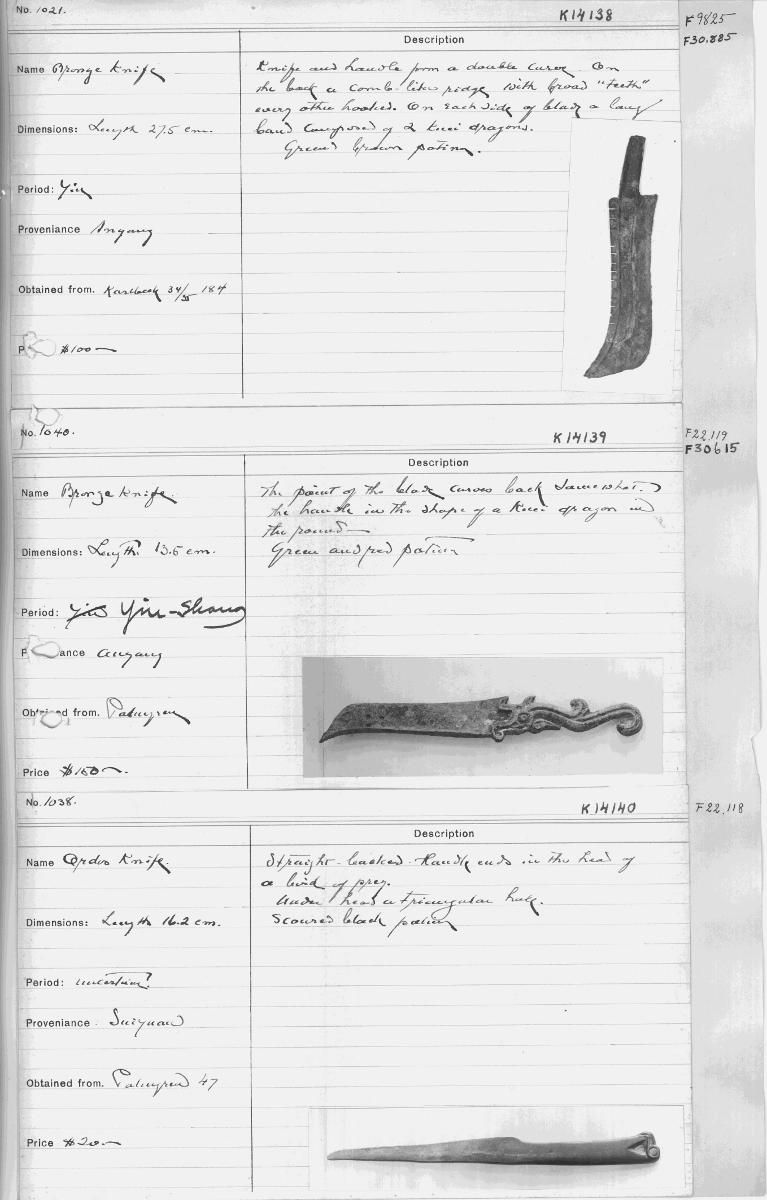 No. 1021.
K14138
F 9825
F30.885
Description
Name Bronze Knife
Knife and handle form a double curve. On
the back a comb-like ridge with broad "teeth"
every other hooked. On each side of blade a long
Dimensions: Length 27.5 cm.
band composed of 2 Kuei dragons.
Green brown patina.
Period: Yin
Proveniance Anyang
Obtained from. Karlbeck 34/35 184
P $100—
No. 1040.
K14139
F22,119
F30615
Description
Name Bronze Knife.
The point of the blade curves back somewhat.
the handle in the shape of a Kuei dragon in
the round—
Dimensions: Length. 13.6 cm.
Green and red patina
Period: Yin Yin-Shang
P ance Anyang
Obtained from. Palmgren
Price $150—.
No. 1038.
K14140
F22,118
Description
Name Ordos Knife.
Straight-backed. Handle ends in the head of
a bird of prey.
Under head a triangular hole.
Dimensions: Length 16.2 cm.
Scoured black patina
Period: uncertain?
Proveniance. Suiyuan
Obtained from. Palmgren 47
Price $20—